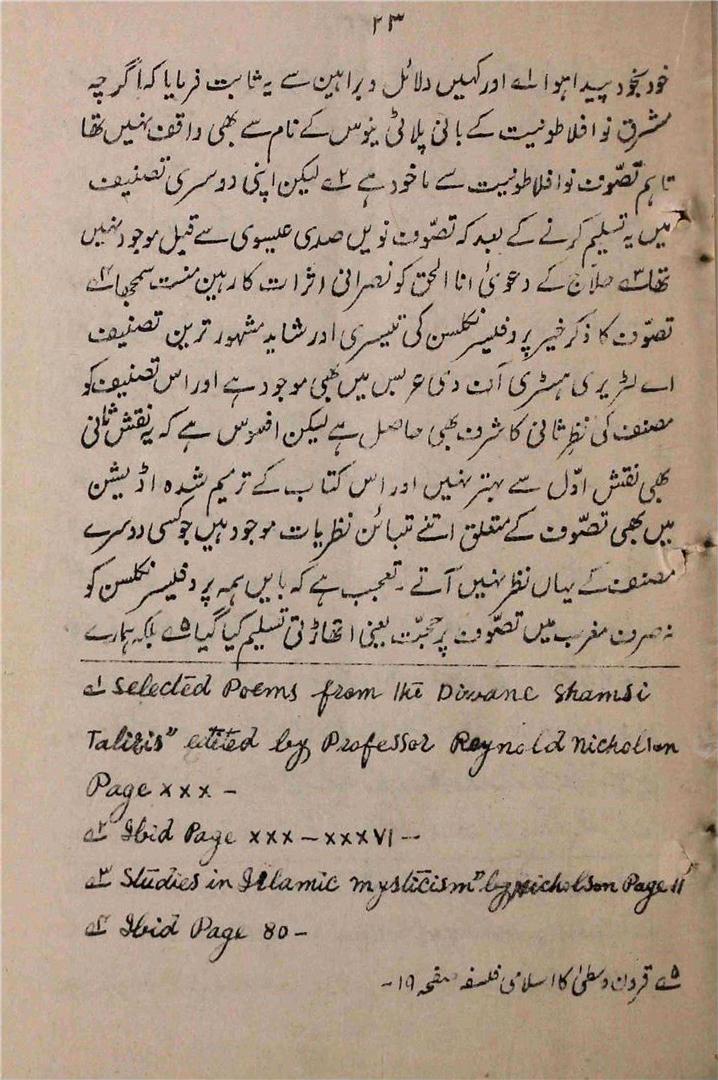 ۲۳
خود بخود پیدا ہوا ۱ے اور کہیں دلائل و براہین سے یہ ثابت فرمایا کہ اگرچہ
مشرق نوافلاطونیت کے بانی پلاٹی ینوس کے نام سے بھی واقف نہیں تھا
تاہم تصوّف نوافلاطونیت سے ماخود ہے ۲ے لیکن اپنی دوسری تصنیف
میں یہ تسلیم کرنے کے بعد کہ تصوّف نویں صدی عیسوی سے قبل موجود نہیں
تھا ۳ے حلاج کے دعویٰ انا الحق کو نصرانی اثرات کا رہین منت سمجھا ۴ے
تصوّف کا ذکر خیر پروفیسر نکلسن کی تیسری اور شاید مشہور ترین تصنیف
اے لٹریری ہسٹری آف دی عربس میں بھی موجود ہے اور اس تصنیف کو
مصنف کی نظرِ ثانی کا شرف بھی حاصل ہے لیکن افسوس ہے کہ یہ نقش ثانی
بھی نقش اوّل سے بہتر نہیں اور اس کتاب کے ترمیم شدہ اڈیشن
میں بھی تصوّف کے متعلق اتنے متبائن نظریات موجود ہیں جو کسی دوسرے
مصنف کے یہاں نظر نہیں آتے ۔ تعجب ہے کہ بایں ہمہ پروفیسر نکلسن کو
نہ صرف مغرب میں تصوّف پر حجّت یعنی اتھاڑٹی تسلیم کیا گیا ۵ے بلکہ ہمارے
۱ے Selected Poems from the Diwane Shamsi
Tabizis" edited by Professor Reynold Nicholson
Page xxx –
۲ے Ibid Page xxx – xxxVI –
۳ے Studies in Islamic mysticism" by Nicholson Page 11
۴ے Ibid Page 80 –
۵ے قرون وسطیٰ کا اسلامی فلسفہ صفحہ ۱۹ –